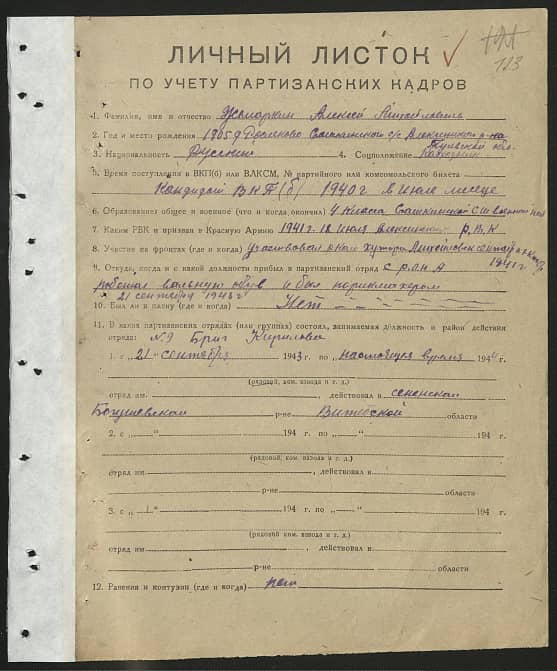 123
ЛИЧНЫЙ ЛИСТОК
ПО УЧЕТУ ПАРТИЗАНСКИХ КАДРОВ
1. Фамилия, имя и отчество Алексей Михайлович
2. Год и место рождения 1905 с/с р-на
Тульской обл.
3. Национальность Русский 4. Соцположение
5. Время поступления в ВКП(б) или ВЛКСМ, № партийного или комсомольского билета
Кандидат ВКП(б) 1940 г в июле месяце
6. Образование общее и военное (что и когда окончил) 4 класса
7. Каким РВК и призван в Красную Армию 1941 г. 18 июля Р.В.К
8. Участие на фронтах (где и когда) участвовал
1941 г.
9. Откуда, когда и с какой должности прибыл в партизанский отряд с
работал и был парикмахером
21 сентября 1943 г
10. Был ли в плену (где и когда) Нет
11. В каких партизанских отрядах (или группах) состоял, занимаемая должность и район действия
отряда: №9 Бриг Кирилова
1. с „21“ сентября 1943 г. по „настоящее время 194 г.
(рядовой, ком. взвода и т. д.)
отряд им. , действовал в сененском
Богушевском р-не Витебской области
2. с „ “ 194 г. по „ “ 194 г.
(рядовой, ком. взвода и т. д.)
отряд им. , действовал в
р-не области
3. с „ “ 194 г. по „ “ 194 г.
(рядовой, ком. взвода и т. д.)
отряд им. , действовал в
р-не области
12. Ранения и контузии (где и когда) нет